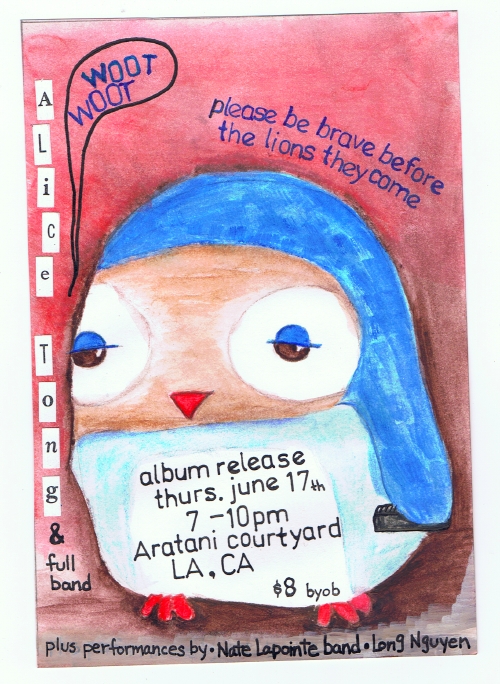 WOOT
WOOT
ALice Tong
&
full
band
please be brave before
the lions they come
album release
thurs. june 17th
7-10pm
Aratani courtyard
LA, CA
$8 byob
plus performances by • Nate Lapointe band • Long Nguyen